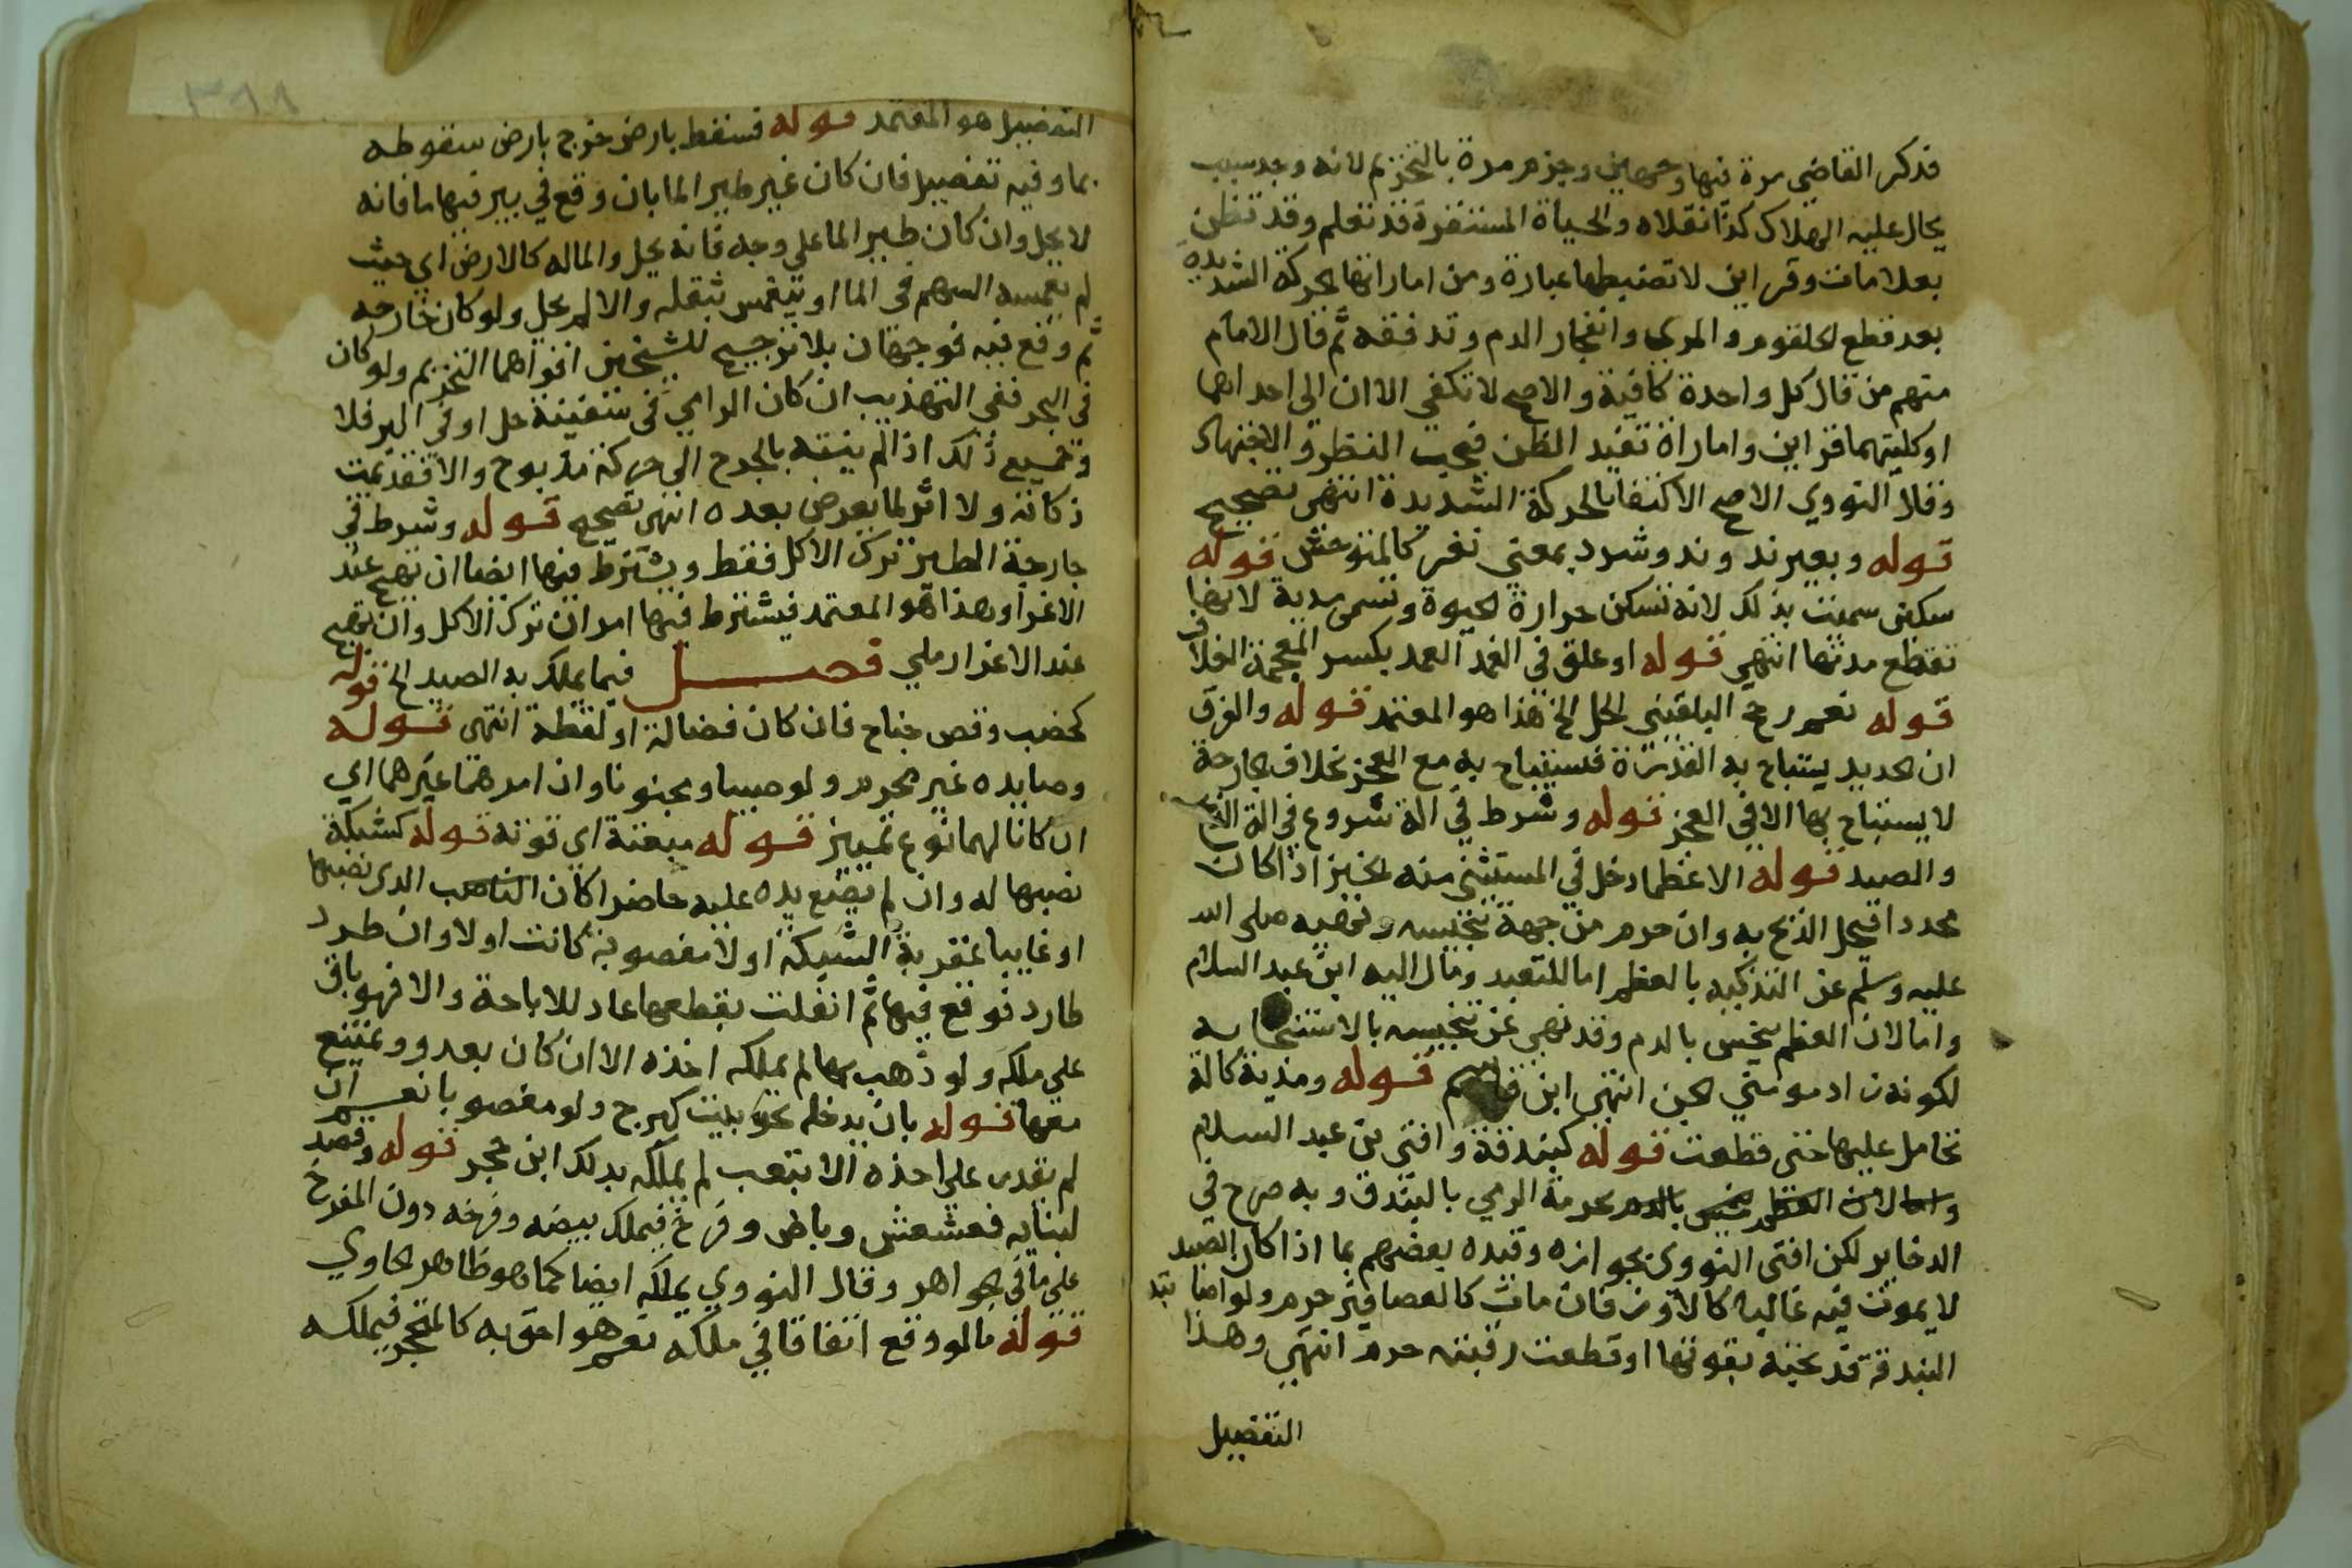 قدكر القاضي مرة فيها وجهين وجزم مرة بالتحريم لانه وجد سبب
يحال عليه الهلاك كذا نقلاه والحياة المستقرة قد تعلم وقد تظن
بعلامات وقراين لا تضبطها عبارة ومن اماراتها الحركة الشديدة
بعد قطع الحلقوم والمري وانفجار الدم وتدفقه ثم قال الامام
منهم من قال كل واحدة كافية والاصح لا تكفي الا ان الى احداهما
او كليتهما قراين وامارات تفيد الظن فيجب النظر والاجتهاد
وقلا النووي الاصح الاكتفا بالحركة الشديدة انتهى تصحيح
قوله وبعير ند وند وشرد بمعنى نفر كالمتوحش قوله
سكين سميت بذلك لانه تسكن حرارة الحيوة وتسمى مدية لانها
تقطع مدتها انتهى قوله او علق في الغمد الغمد بكسر المعجمة الغلاف
قوله نعم رجح البلقيني الحل الخ هذا هو المعتمد قوله والفرق
ان الحديد يستباح به القدرة فيستباح به مع العجز بخلاف الجارحة
لا يستباح بها الا في العجز قوله وشرط في الة شروع في الة الذبح
والصيد قوله الا عظما دخل في المستثنى منه الخبز اذا كان
محددا فيحل الذبح به وان حرم من جهة تنجيسه ونهيه صلى الله
عليه وسلم عن التذكية بالعظم اما للتعبد ومال اليه ابن عبد السلام
واما لان العظم ينجس بالدم وقد نهي عن تنجيسه بالاستنجا به
لكونه زاد مومني الجن انتهى ابن قاسم قوله ومدية كالة
تحامل عليها حتى قطعت قوله كبندقة وافتى بن عبد السلام
واما لان العظم ينجس بالدم بحرمة الرمي بالبندق وبه صرح في
الدخاير لكن افتى النووي بجوازه وقيده بعضهم بما اذا كان الصيد
لا يموت فيه غالبا كالاوز فان مات كالعصافير حرم ولو اصابته
البندقة فذبحته بقوتها او قطعت رقبته حرم انتهى وهذا
التفصيل
التفصيل هو المعتمد قوله فسقط بارض خرج بارض سقوطه
بما وفيه تفصيل فان كان غير طير الما بان وقع في بير فيها ما فانه
لا يحل وان كان طير الما على وجه فانه يحل والما له كالارض اي حيث
لم يغمسه السهم في الما او ينغمس بثقله والا لم يحل ولو كان خارجه
ثم وقع فيه فوجهان بلا ترجيح للشيخين اقواهما التحريم ولو كان
في البحر ففي التهذيب ان كان الرامي في سفينة حل او في البر فلا
وجميع ذلك اذا لم ينته بالجرح الى حركة مذبوح والا فقد تمت
ذكاته ولا اثر لما يعرض بعده انتهى تصحيح قوله وشرط في
جارحة الطير ترك الاكل فقط ويشترط فيها ايضا ان تهيج عند
الاغرا وهذا هو المعتمد فيشترط فيها امران ترك الاكل وان تهيج
عند الاغرا رملي فصل فيما يملك به الصيد الخ قوله
كخضب وقص جناح فان كان فضالة او لقطة انتهى قوله
وصايده غير محرم ولو صبيا ومجنونا وان امرهما غيرهما اي
ان كانا لهما نوع تمييز قوله ميعنة اي قوته قوله كشبكة
نصبها له وان لم يضع يده عليه حاضرا كان الناصب الذي نصبها
او غايبا بمغربة الشبكة او لا مغصوبة كانت او لا وان طرد
طارد فوقع فيها ثم انفلت بقطعها عاد للاباحة والا فهو باق
على ملكه ولو ذهب بها لم يملكه اخذه الا ان كان يعدو ويمتنع
معها قوله بان يدخله نحو بيت كبرج ولو مغصوبا نعم ان
لم يقدر على اخذه الا بتعب لم يملكه بذلك ابن حجر قوله وقصد
لبنايه فعشعش وباض وفرخ فيملك بيضه وفرخه دون المفرخ
على ما في الجواهر وقال النووي يملكه ايضا كما هو ظاهر الحاوي
قوله ما لو وقع اتفاقا في ملكه نعم هو احق به كالمتحجر فيملكه